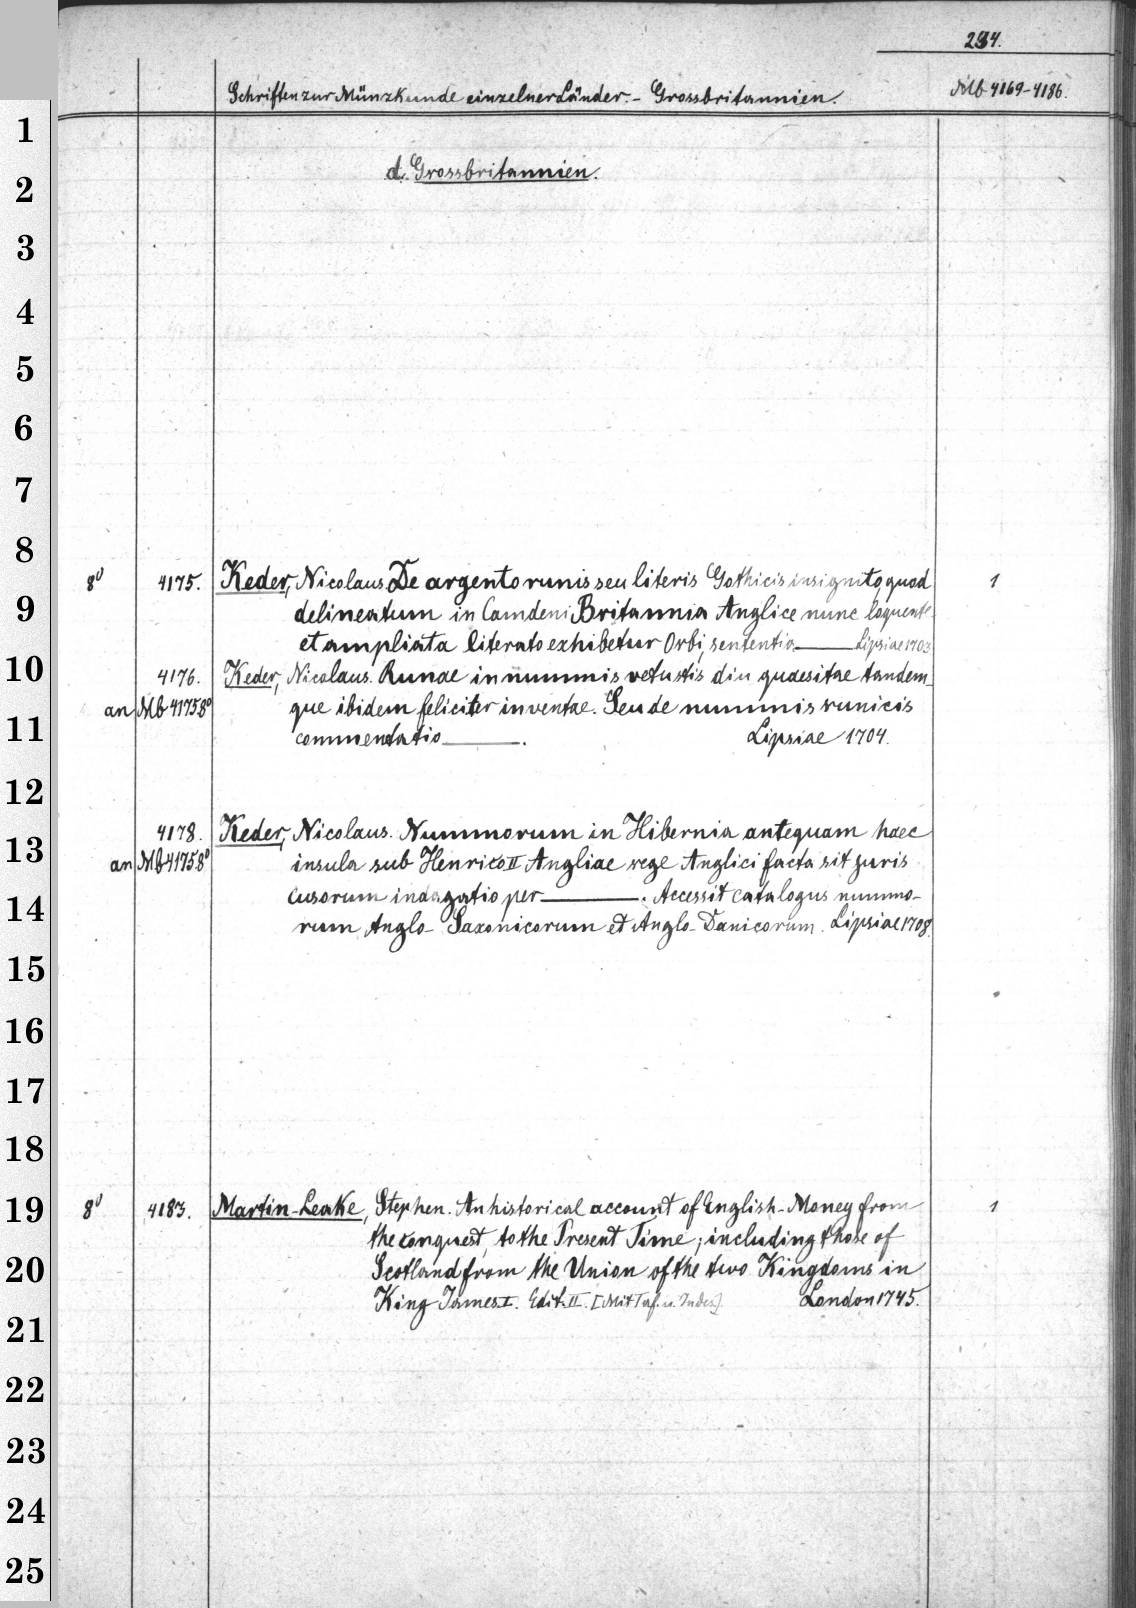 234.
Schriften zur Münzkunde einzelner Länder. - Grossbritannien. Mb 4169-4186.
1
d. Grossbritannien.
2
3
4
5
6
7
8
8° 4175. Keder, Nicolaus. De argento runis seu literis Gothicis insignito, quod 1
9
delineatum in Camdeni Britannia Anglice nunc loquente
et ampliata literato exhibetur Orbi, sententia ——— Lipsiae 1703.
10
4176. Keder, Nicolaus. Runae in nummis vetustis diu quaesitae tandem-
an Mb 4175 8° que ibidem feliciter inventae. Seu de nummis runicis
11
commentatio ———. Lipsiae 1704.
12
4178. Keder, Nicolaus. Nummorum in Hibernia antequam haec
13
an Mb 4175 8° insula sub Henrico II Angliae rege Anglici facta sit juris
cusorum indagatio per ———. Accessit catalogus nummo-
14
rum Anglo-Saxonicorum et Anglo-Danicorum. Lipsiae 1708.
15
16
17
18
19
8° 4183. Martin-Leake, Stephen. An historical account of English-Money from 1
the conquest, to the Present Time; including those of
20
Scotland from the Union of the two Kingdoms in
King James I. Edit. II. [Mit Taf. u. Index] London 1745.
21
22
23
24
25